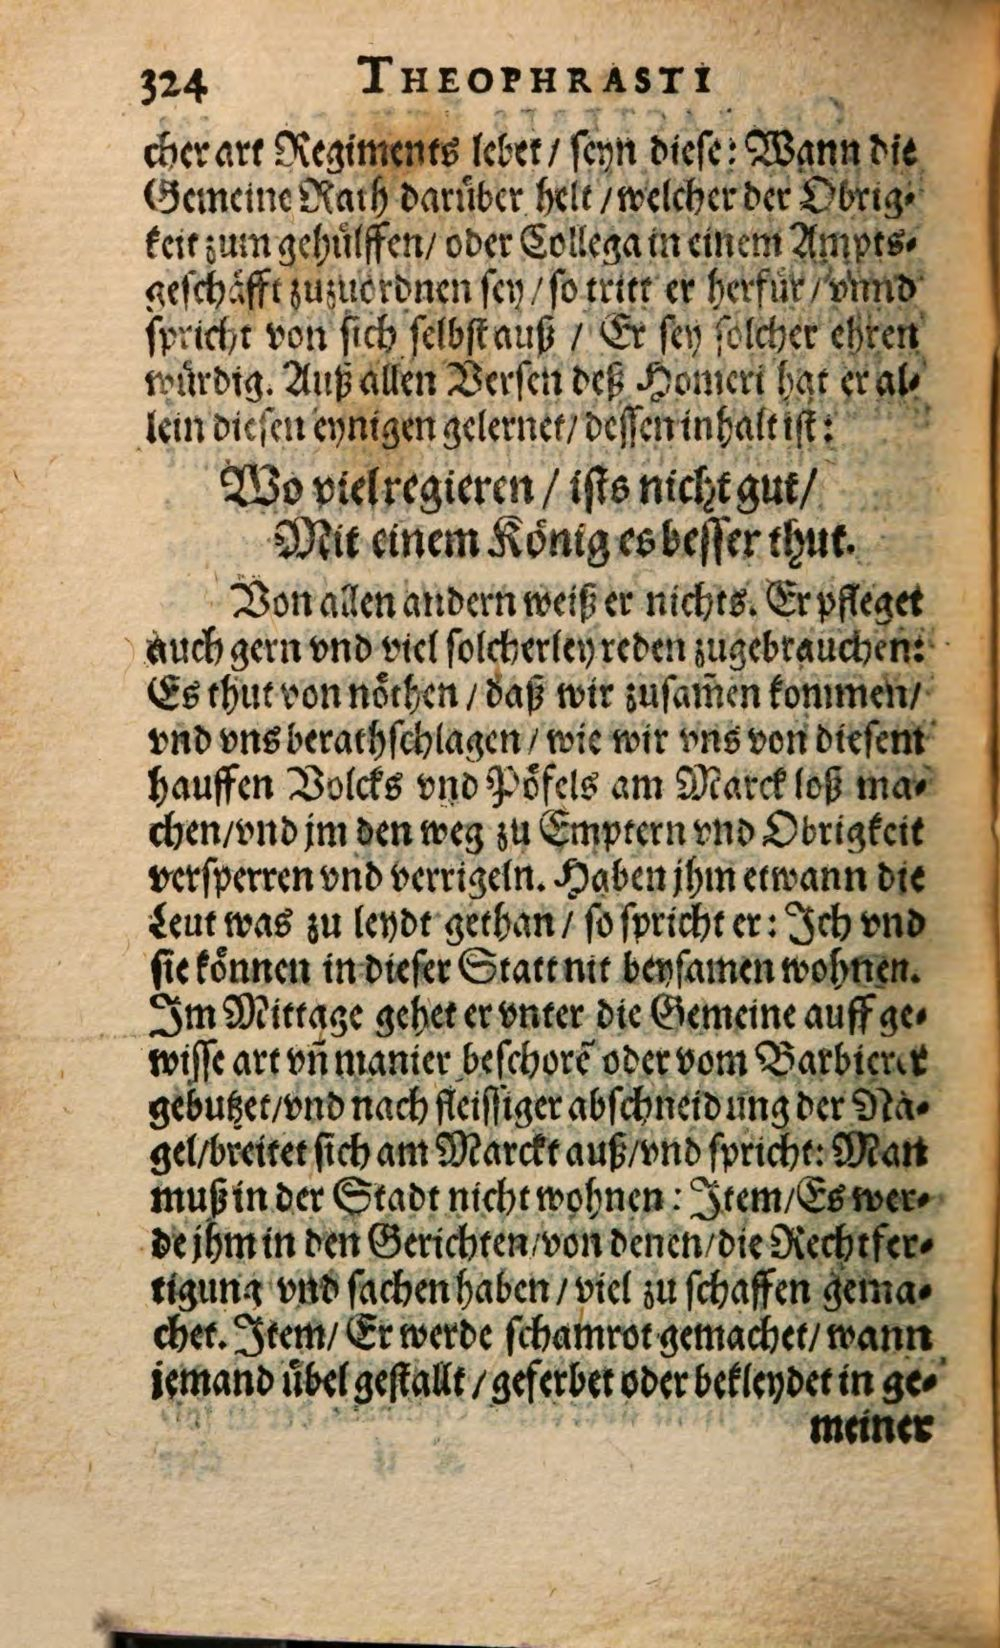 324 THEOPHRASTI
cher art Regiments lebet / seyn diese: Wann die
Gemeine Rath darüber helt / welcher der Obrig-
keit zum gehülffen / oder Collega in einem Ampts-
geschäfft zuzuordnen sey / so tritt er herfür / vnnd
spricht von sich selbst auß / Er sey solcher ehren
würdig. Auß allen Versen deß Homeri hat er al-
lein diesen eynigen gelernet / dessen inhalt ist:
Wo viel regieren / ists nicht gut /
Mit einem König es besser thut.
Von allen andern weiß er nichts. Er pfleget
auch gern vnd viel solcherley reden zugebrauchen:
Es thut von nöthen / daß wir zusam̃en kommen /
vnd vns berathschlagen / wie wir vns von diesem
hauffen Volcks vnd Pöfels am Marck loß ma-
chen / vnd jm den weg zu Emptern vnd Obrigkeit
versperren vnd verrigeln. Haben jhm etwann die
Leut was zu leydt gethan / so spricht er: Ich vnd
sie können in dieser Statt nit beysamen wohnen.
Im Mittage gehet er vnter die Gemeine auff ge-
wisse art vñ manier beschorẽ oder vom Barbierer
gebutzet / vnd nach fleissiger abschneidung der Nä-
gel / breitet sich am Marckt auß / vnd spricht: Man
muß in der Stadt nicht wohnen: Item / Es wer-
de jhm in den Gerichten / von denen / die Rechtfer-
tigung vnd sachen haben / viel zu schaffen gema-
chet. Item / Er werde schamrot gemachet / wann
jemand übel gestallt / geferbet oder bekleydet in ge-
meiner